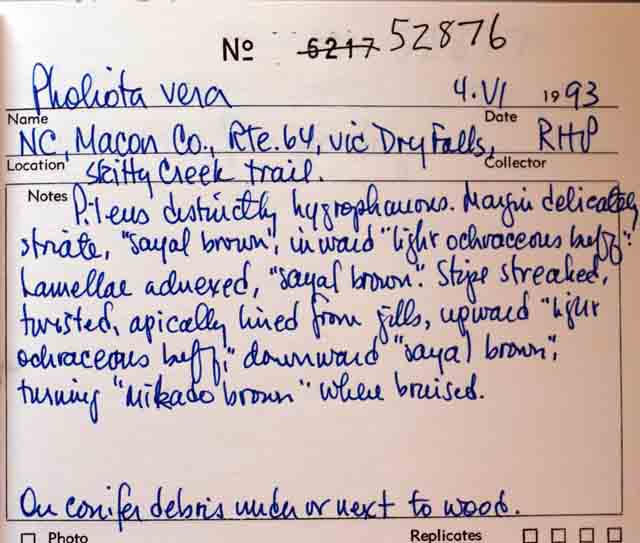 No 6217 52876
Pholiota vera 4.VI 1993
Name Date
NC, Macon Co., Rte. 64, vic Dry Falls, RHP
Location Skitty Creek trail. Collector
Notes Pileus distinctly hygrophanous. Margin delicately
striate, "sayal brown", inward "light ochraceous buff".
Lamellae adnexed, "sayal brown". Stipe streaked,
twisted, apically lined from gills, upward "light
ochraceous buff," downward "sayal brown",
turning "mikado brown" when bruised.
On conifer debris under or next to wood.
Photo Replicates